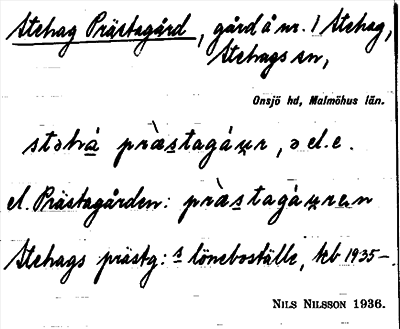 Stehag Prästagård, gård å nr. 1 Stehag,
Stehags sn,
Onsjö hd, Malmöhus län.
stəhá prà̀stagáur, ə el. e.
el. Prästagården: prà̀stagáurən
Stehags prästg:s löneboställe, kb 1935–.
NILS NILSSON 1936.